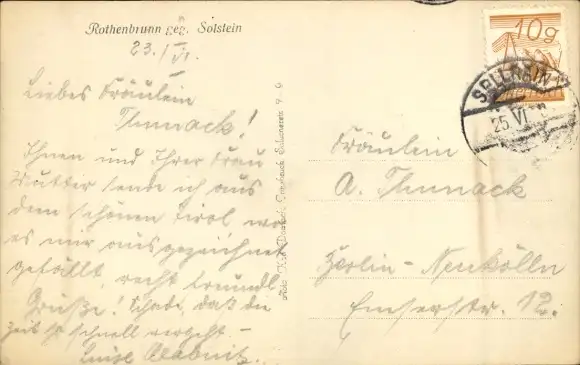 Rothenbrunn geg. Solstein
23./VI.
Liebes Fräulein
Thunack!
Ihnen und Ihrer Frau
Mutter sende ich aus
dem schönen Tirol, wo
es mir ausgezeichnet
gefällt, recht freundl.
Grüße! Schade, daß die
Zeit so schnell vergeht –
Luise
10g
SELLRAIN
25.VI
Fräulein
A. Thunack
Berlin-Neukölln
Emserstr. 12.